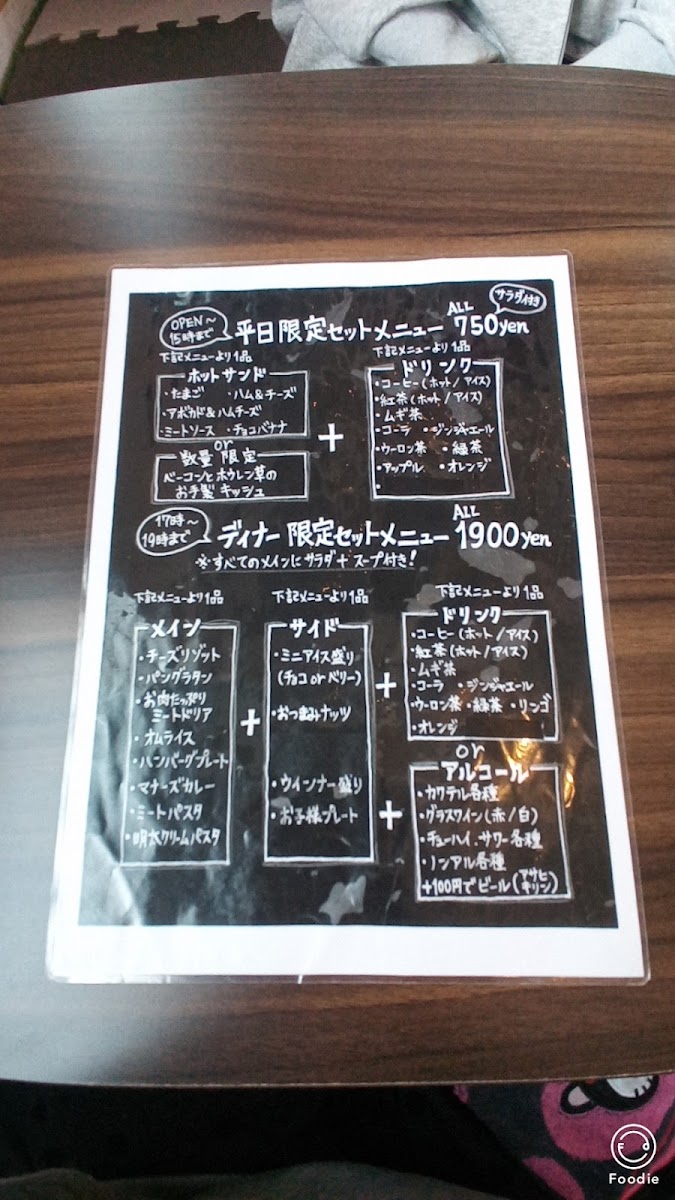 OPEN〜
15時まで
平日限定セットメニュー ALL 750yen
サラダ付き
下記メニューより1品
ホットサンド
・たまご ・ハム&チーズ
・アボカド&ハムチーズ
・ミートソース ・チョコバナナ
or
数量限定
ベーコンとホウレン草の
お手製キッシュ
+
下記メニューより1品
ドリンク
・コーヒー(ホット/アイス)
・紅茶(ホット/アイス)
・ムギ茶
・コーラ ・ジンジャエール
・ウーロン茶 ・緑茶
・アップル ・オレンジ
・
17時〜
19時まで
ディナー限定セットメニュー ALL 1900yen
※すべてのメインにサラダ+スープ付き!
下記メニューより1品
メイン
・チーズリゾット
・パングラタン
・お肉たっぷり
ミートドリア
・オムライス
・ハンバーグプレート
・マナーズカレー
・ミートパスタ
・明太クリームパスタ
+
下記メニューより1品
サイド
・ミニアイス盛り
(チョコorベリー)
・おつまみナッツ
・ウインナー盛り
・お子様プレート
+
下記メニューより1品
ドリンク
・コーヒー(ホット/アイス)
・紅茶(ホット/アイス)
・ムギ茶
・コーラ ・ジンジャエール
・ウーロン茶 ・緑茶 ・リンゴ
・オレンジ
or
+
アルコール
・カクテル各種
・グラスワイン(赤/白)
・チューハイ、サワー各種
・ノンアル各種
+100円でビール(アサヒ キリン)
Fd
Foodie